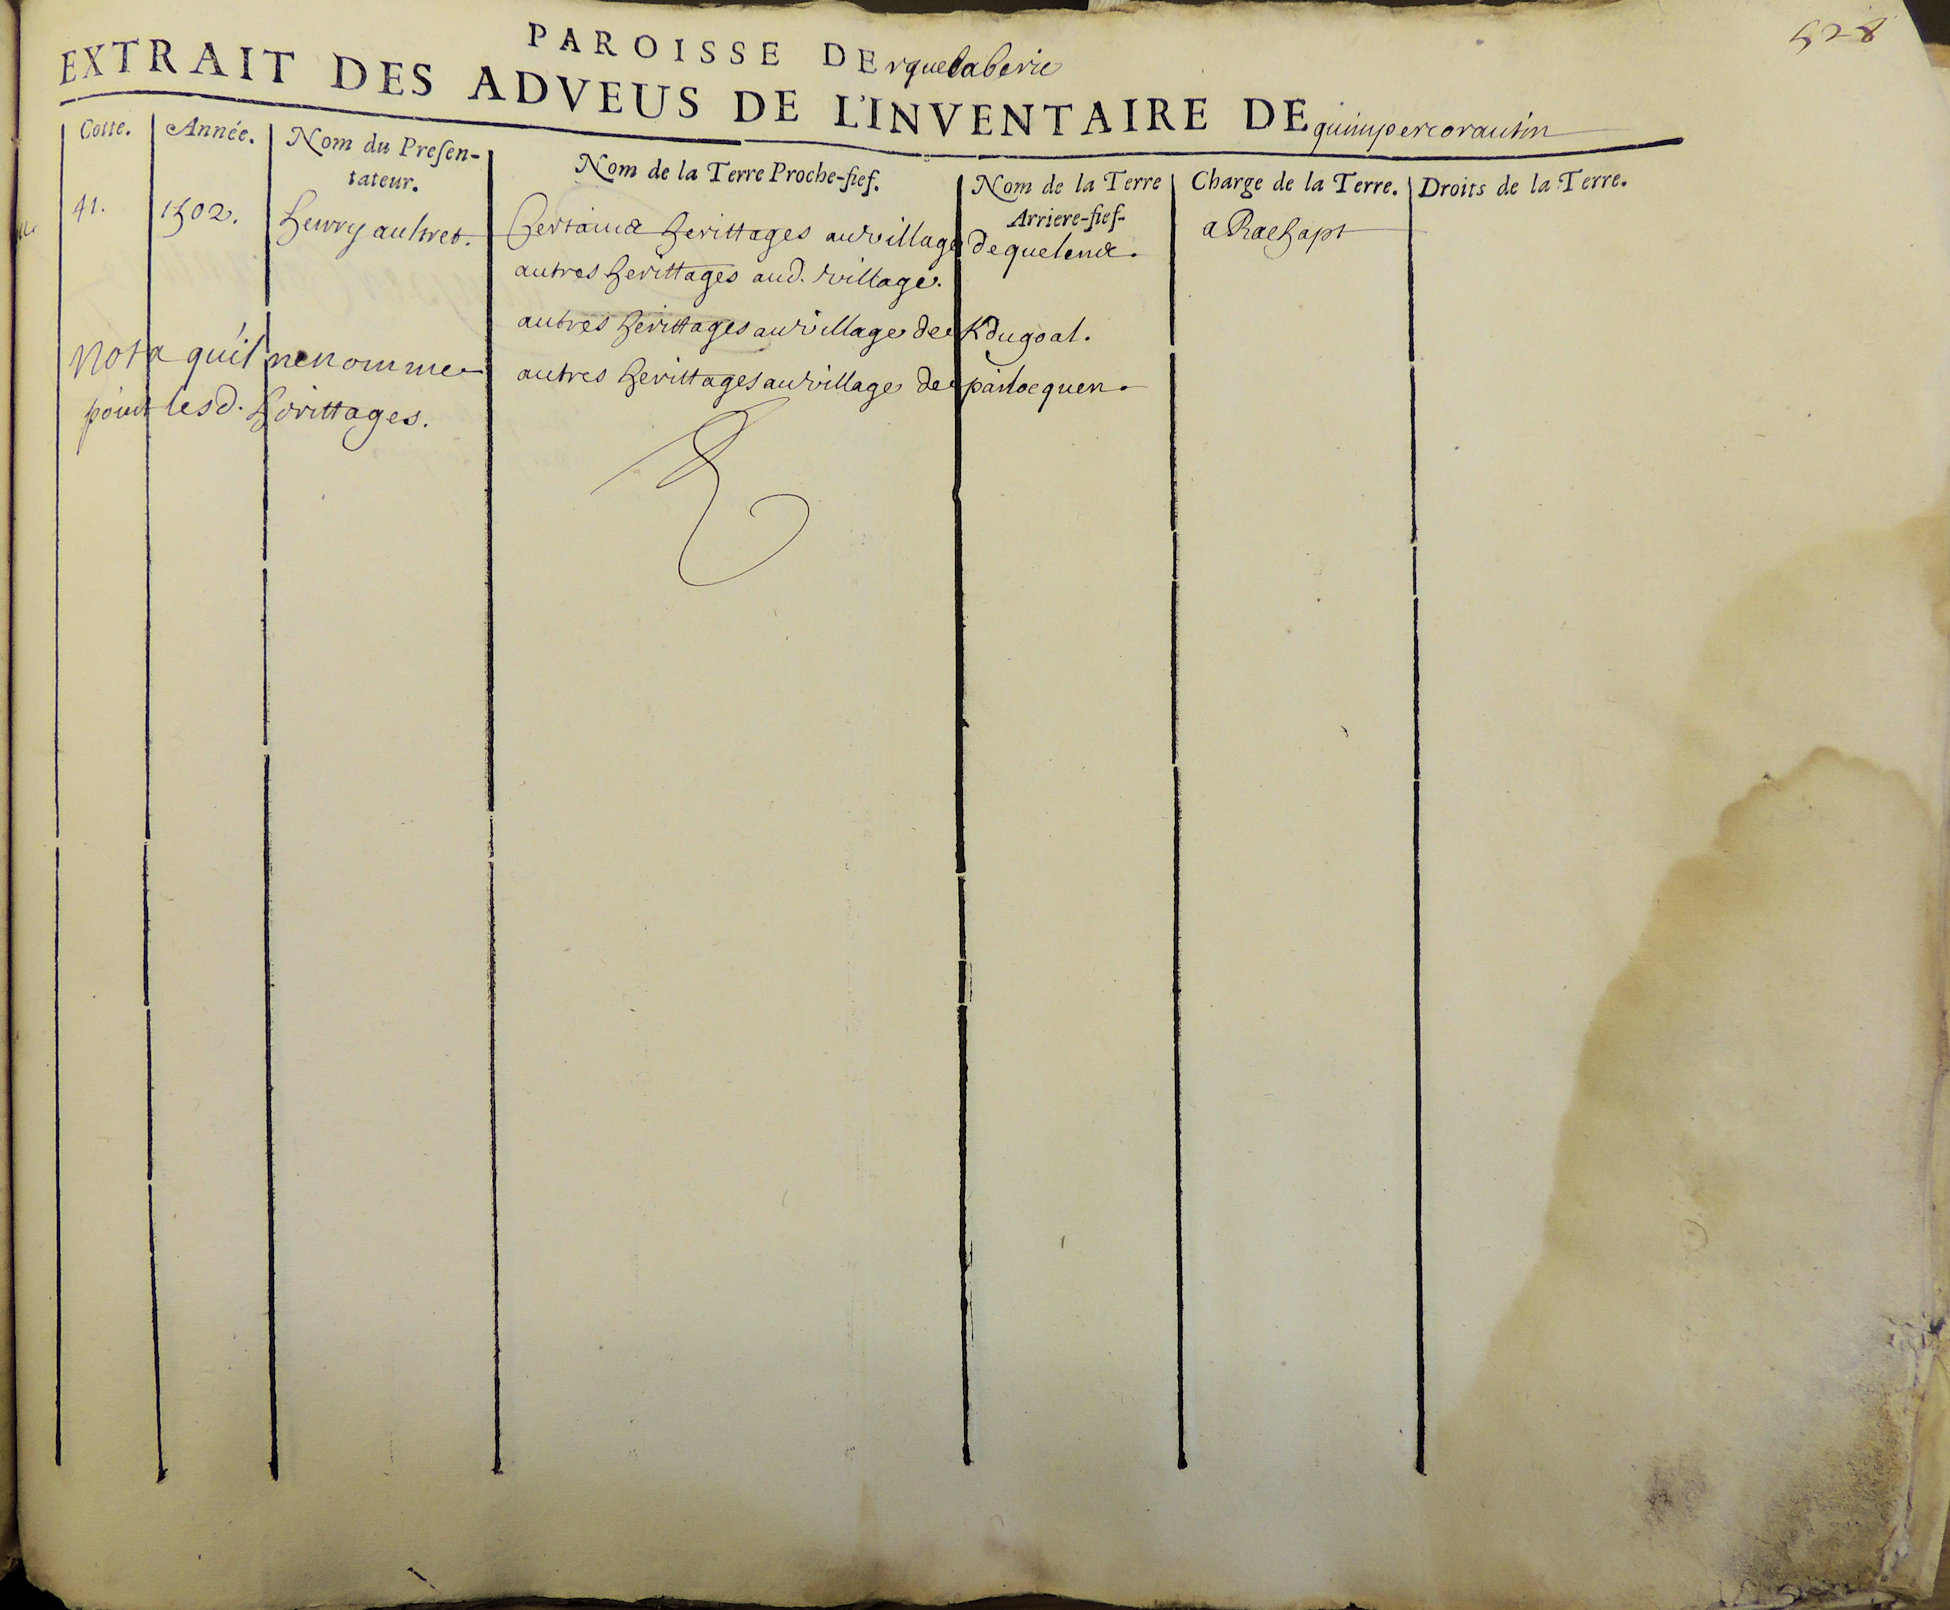 528
PAROISSE DErquegaberic
EXTRAIT DES ADVEUS DE L'INVENTAIRE DE quimpercorantin
Cotte. Année. Nom du Presen-tateur. Nom de la Terre Proche-fief. Nom de la Terre Arriere-fief. Charge de la Terre. Droits de la Terre.
41. 1502. henry autret. Certains herittages au village de quelenec. a Rachapt
autres herittages aud. village.
autres herittages au village de Kdugoal.
Nota qu'il ne nomme
autres herittages au village de parlocquen.
point lesd. herittages.